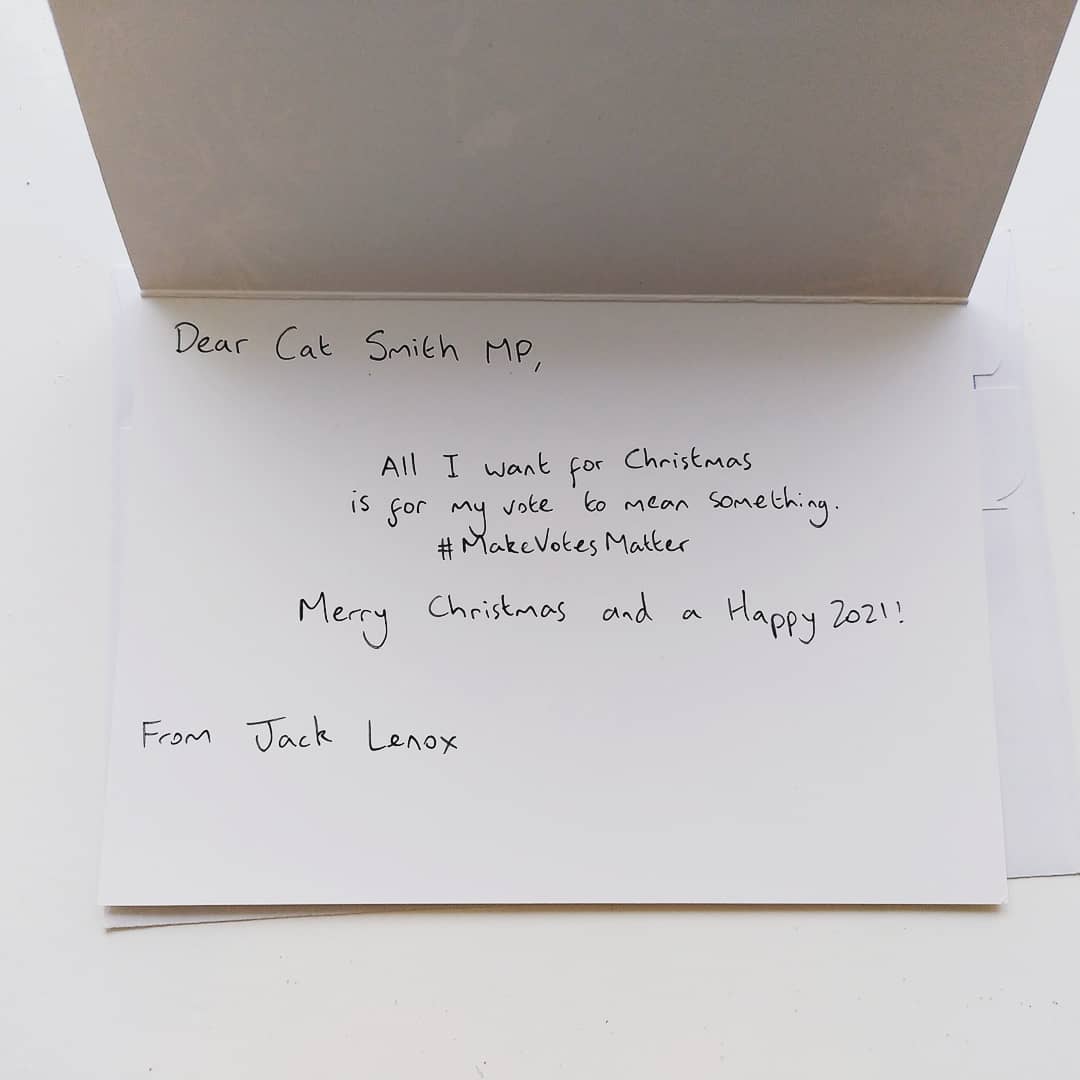 Dear Cat Smith MP,
All I want for Christmas
is for my vote to mean something.
#MakeVotesMatter
Merry Christmas and a Happy 2021!
From Jack Lenox